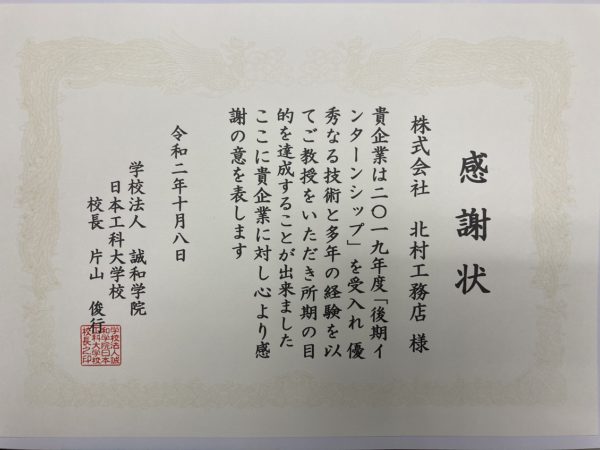 感謝状
株式会社 北村工務店 様
貴企業は二〇一九年度「後期イ
ンターンシップ」を受入れ 優
秀なる技術と多年の経験を以
てご教授をいただき所期の目
的を達成することが出来ました
ここに貴企業に対し心より感
謝の意を表します
令和二年十月八日
学校法人 誠和学院
日本工科大学校
校長 片山 俊行
学校法人誠
和学院日本
工科大学校
校長之印